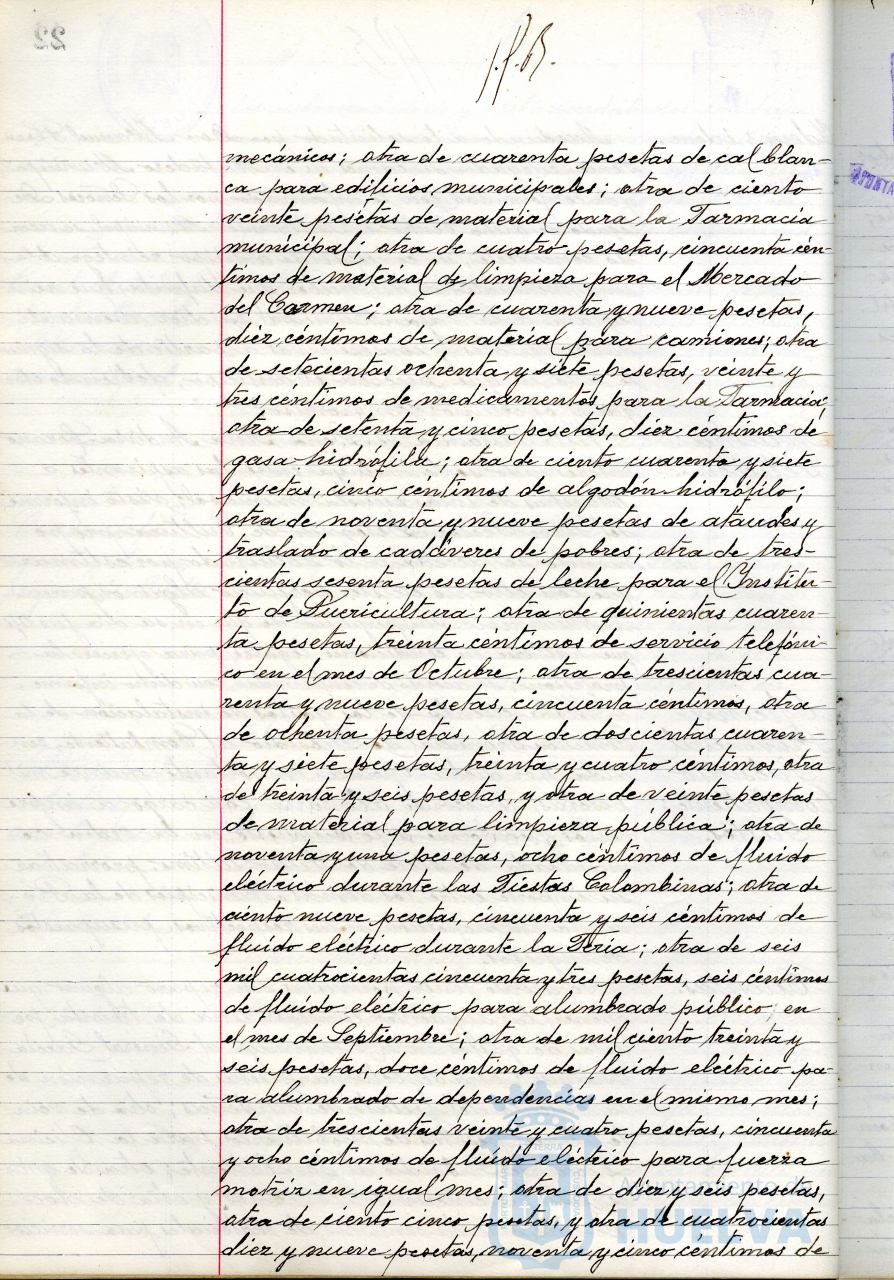 mecánicos; otra de cuarenta pesetas de cal blan-
ca para edificios municipales; otra de ciento
veinte pesetas de material para la Farmacia
municipal; otra de cuatro pesetas, cincuenta cén-
timos de material de limpieza para el Mercado
del Carmen; otra de cuarenta y nueve pesetas,
diez céntimos de material para camiones; otra
de setecientas ochenta y siete pesetas, veinte y
tres céntimos de medicamentos para la Farmacia;
otra de setenta y cinco pesetas, diez céntimos de
gasa hidrófila; otra de ciento cuarenta y siete
pesetas, cinco céntimos de algodón hidrófilo;
otra de noventa y nueve pesetas de ataudes y
traslado de cadáveres de pobres; otra de tres-
cientas sesenta pesetas de leche para el Institu-
to de Puericultura; otra de quinientas cuaren-
ta pesetas, treinta céntimos de servicio telefóni-
co en el mes de Octubre; otra de trescientas cua-
renta y nueve pesetas, cincuenta céntimos, otra
de ochenta pesetas, otra de doscientas cuaren-
ta y siete pesetas, treinta y cuatro céntimos, otra
de treinta y seis pesetas, y otra de veinte pesetas
de material para limpieza pública; otra de
noventa y una pesetas, ocho céntimos de fluido
eléctrico durante las Fiestas Colombinas; otra de
ciento nueve pesetas, cincuenta y seis céntimos de
fluído eléctrico durante la Feria; otra de seis
mil cuatrocientas cincuenta y tres pesetas, seis céntimos
de fluído eléctrico para alumbrado público, en
el mes de Septiembre; otra de mil ciento treinta y
seis pesetas, doce céntimos de fluído eléctrico pa-
ra alumbrado de dependencias en el mismo mes;
otra de trescientas veinte y cuatro pesetas, cincuenta
y ocho céntimos de fluído eléctrico para fuerza
motriz en igual mes; otra de diez y seis pesetas,
otra de ciento cinco pesetas, y otra de cuatrocientas
diez y nueve pesetas, noventa y cinco céntimos de
Ayuntamiento de
HUELVA